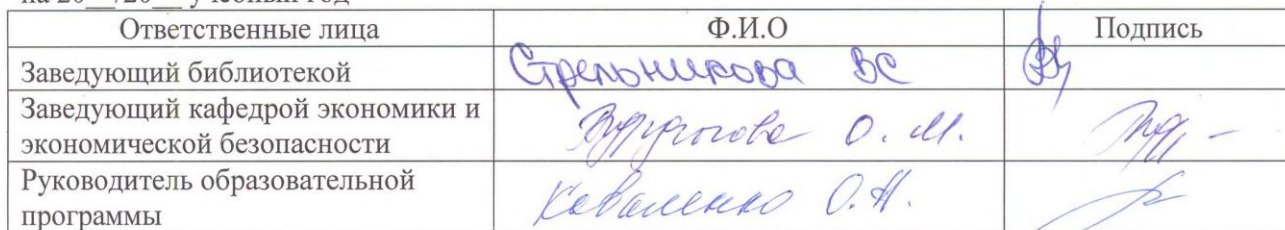 на 20__/20__ учебный год
Ответственные лица Ф.И.О Подпись
Заведующий библиотекой Стрельникова ВС
Заведующий кафедрой экономики и
экономической безопасности О.М.
Руководитель образовательной
программы Коваленко О.Н.